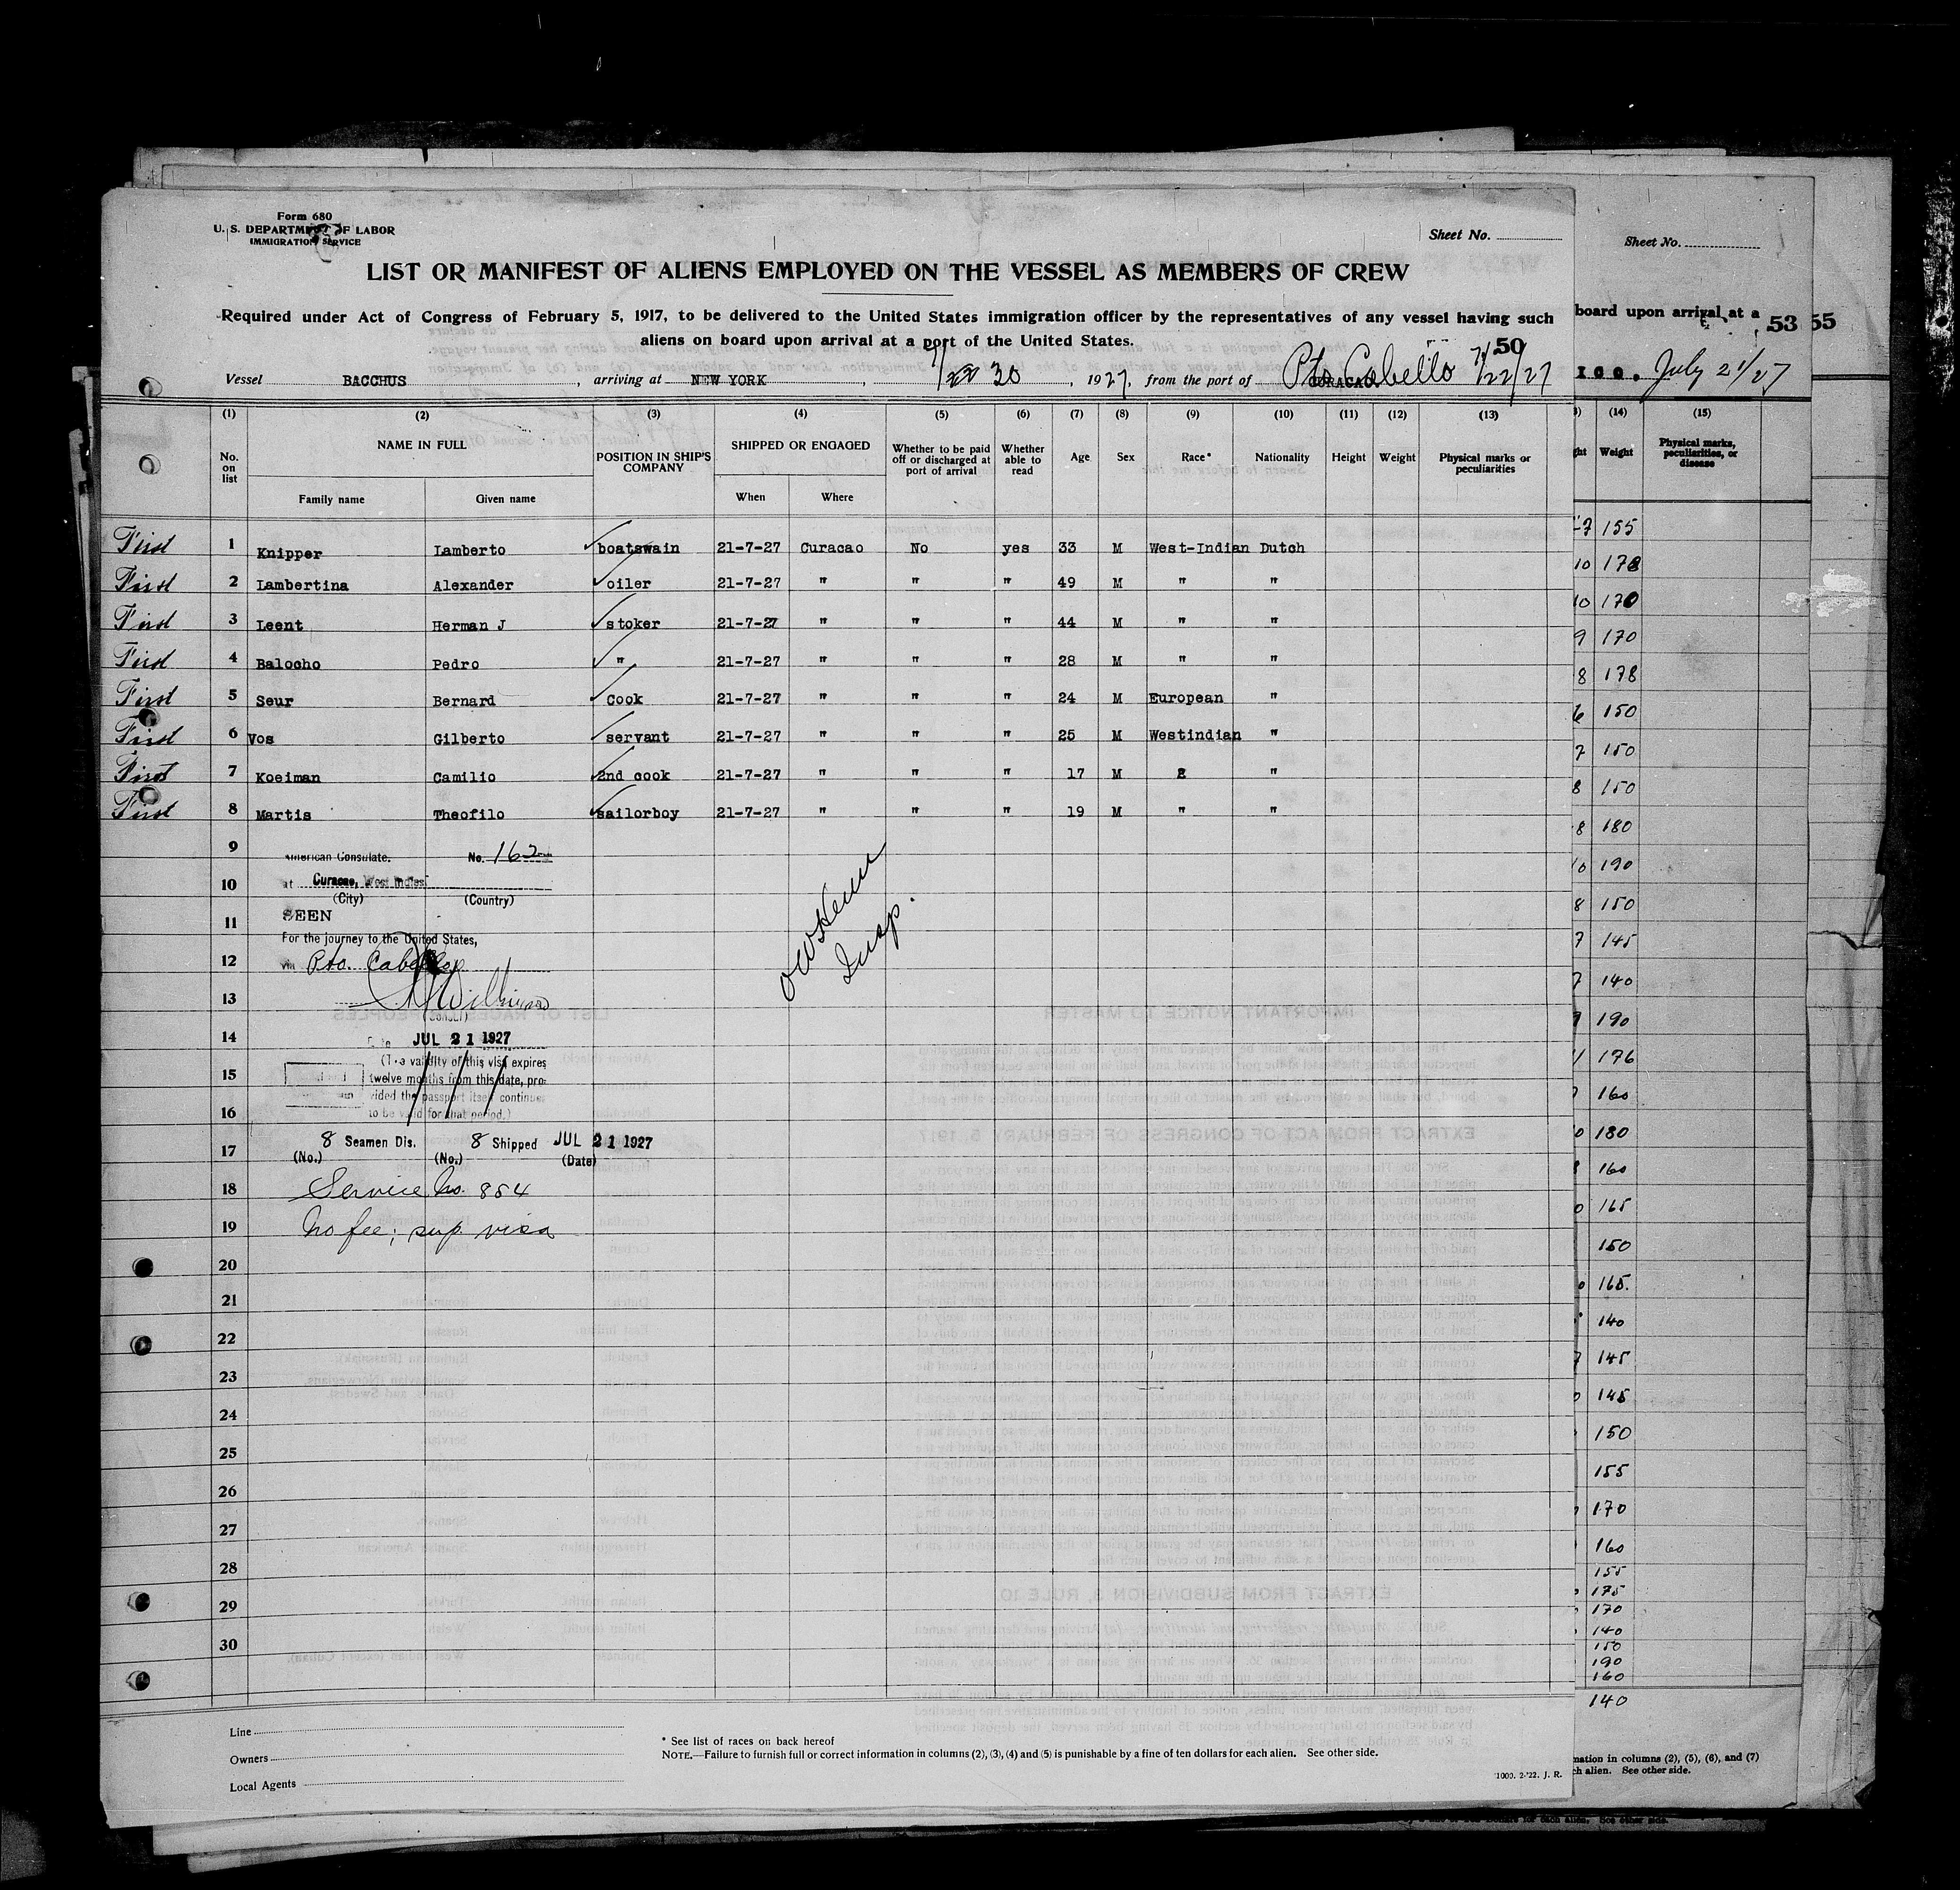 Form 680
U. S. DEPARTMENT OF LABOR
IMMIGRATION SERVICE
Sheet No.
Sheet No.
LIST OR MANIFEST OF ALIENS EMPLOYED ON THE VESSEL AS MEMBERS OF CREW
Required under Act of Congress of February 5, 1917, to be delivered to the United States immigration officer by the representatives of any vessel having such
aliens on board upon arrival at a port of the United States.
board upon arrival at a
53 55
50
Vessel BACCHUS, arriving at NEW YORK, 7/30, 1927, from the port of CURACAO Pto Cabello 7/22/27
ICO. July 21/27
(1) (2) (3) (4) (5) (6) (7) (8) (9) (10) (11) (12) (13) (14) (15)
No. on list NAME IN FULL Family name Given name POSITION IN SHIP'S COMPANY SHIPPED OR ENGAGED When Where Whether to be paid off or discharged at port of arrival Whether able to read Age Sex Race* Nationality Height Weight Physical marks or peculiarities
Weight Physical marks, peculiarities, or disease
First 1 Knipper Lamberto boatswain 21-7-27 Curacao No yes 33 M West-Indian Dutch
First 2 Lambertina Alexander oiler 21-7-27 " " " 49 M " "
First 3 Leent Herman J stoker 21-7-27 " " " 44 M " "
First 4 Balocho Pedro " 21-7-27 " " " 28 M " "
First 5 Seur Bernard cook 21-7-27 " " " 24 M European "
First 6 Vos Gilberto servant 21-7-27 " " " 25 M Westindian "
First 7 Koeiman Camilio 2nd cook 21-7-27 " " " 17 M "
First 8 Martis Theofilo sailorboy 21-7-27 " " " 19 M " "
9
American Consulate. No. 162
10
at Curacao, West Indies
(City) (Country)
11
SEEN
For the journey to the United States,
12
via Pto. Cabello
13
Wilkinson
(Consul)
14
Date JUL 21 1927
(The validity of this visa expires
15
twelve months from this date, pro-
vided the passport itself continues
16
to be valid for that period.)
17
8 Seamen Dis. 8 Shipped JUL 21 1927
(No.) (No.) (Date)
18
Service No. 854
19
No fee; sup. visa
Insp.
20
21
22
23
24
25
26
27
28
29
30
155
178
170
170
178
150
150
150
180
190
150
145
140
190
176
160
180
160
165
150
165.
140
145
145
150
155
170
160
155
175
170
140
150
190
160
140
Line
Owners
Local Agents
* See list of races on back hereof
NOTE.—Failure to furnish full or correct information in columns (2), (3), (4) and (5) is punishable by a fine of ten dollars for each alien. See other side.
1000. 2-'22. J. R.
mation in columns (2), (5), (6), and (7)
ch alien. See other side.